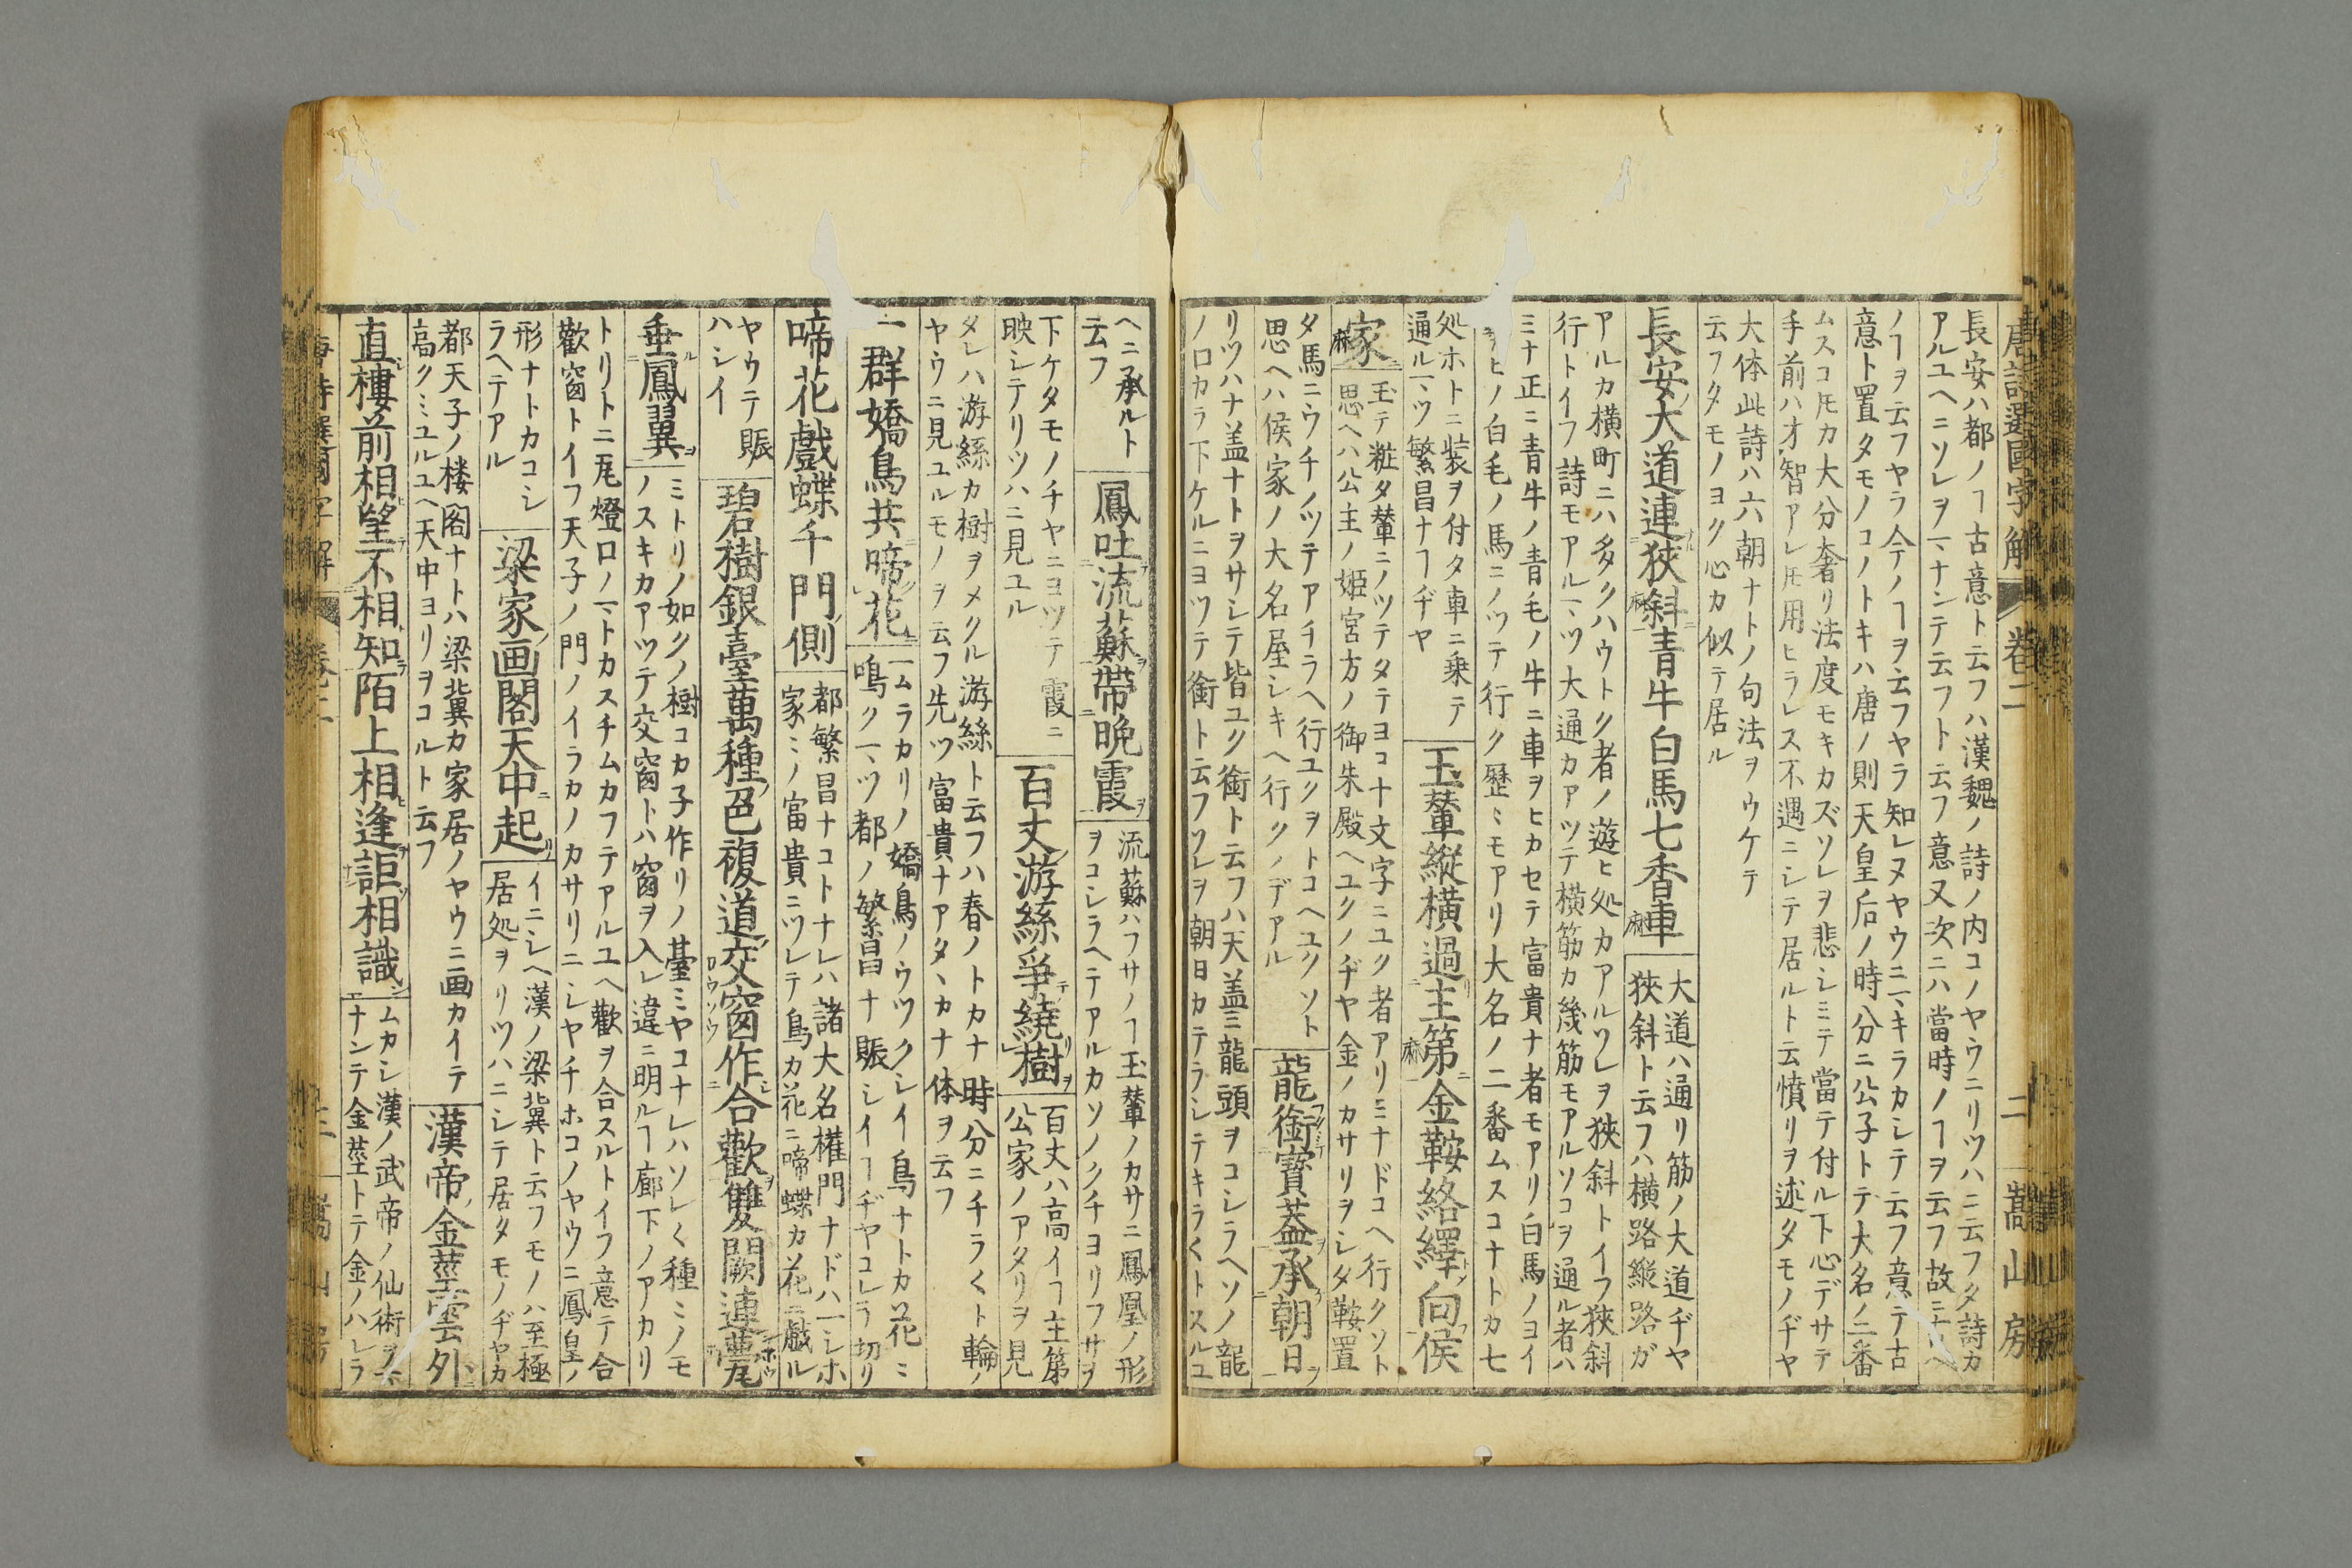 唐詩選國字解 卷二 二 嵩山房
長安ハ都ノヿ古意ト云フハ漢魏ノ詩ノ内コノヤウニリツハニ云フタ詩カ
アルユヘニソレヲ一ナンテ云フト云フ意又次ニハ當時ノヿヲ云フ故ニ古ヘ
ノヿヲ云フヤラ今ノヿヲ云フヤラ知レヌヤウニキラカシテ云フ意テ古
意ト置タモノコノトキハ唐ノ則天皇后ノ時分ニ公子トテ大名ノ二番
ムスコ𪜈カ大分奢リ法度モキカズソレヲ悲シミテ當テ付ル下心デサテ
手前ハオ智アレ𪜈用ヒラレス不遇ニシテ居ルト云憤リヲ述タモノヂヤ
大体此詩ハ六朝ナトノ句法ヲウケテ
云フタモノヨク心カ似テ居ル
長安大道連狹斜青牛白馬七香車
大道ハ通リ筋ノ大道ヂヤ
狹斜ト云フハ横路縱路ガ
アルカ横町ニハ多クハウトク者ノ遊ヒ処カアルソレヲ狹斜トイフ狹斜
行トイフ詩モアル一ツ大通カアツテ横筋カ幾筋モアルソコヲ通ル者ハ
ミナ正ニ青牛ノ青毛ノ牛ニ車ヲヒカセテ富貴ナ者モアリ白馬ノヨイ
ヒノ白毛ノ馬ニノツテ行ク歴ミモアリ大名ノ二番ムスコナトカ七
処ホトニ装ヲ付タ車ニ乗テ
通ル一ツ繁昌ナヿヂヤ
玉輦縱橫過主第金鞍絡繹向侯
家
玉テ粧タ輦ニノツテタテヨコ十文字ニユク者アリミナドコヘ行クソト
思ヘハ公主ノ姫宮方ノ御朱殿ヘユクノヂヤ金ノカサリヲシタ鞍置
タ馬ニウチノツテアチラヘ行ユクヲトコヘユクソト
思ヘハ侯家ノ大名屋シキヘ行クノデアル
龍銜寶蓋承朝日
リツハナ蓋ナトヲサシテ皆ユク銜ト云フハ天蓋ニ龍頭ヲコシラヘソノ龍
ノ口カラ下ケルニヨツテ銜ト云フソレヲ朝日カテラシテキラ〱トスルユ
ヘニ承ルト
云フ
鳳吐流蘇帶晩霞
流蘇ハフサノヿ玉輦ノカサニ鳳凰ノ形
ヲコシラヘテアルカソノクチヨリフサヲ
下ケタモノチヤニヨツテ霞ニ
映シテリツハニ見ユル
百丈游絲爭繞樹
百丈ハ高イヿ主第
公家ノアタリヲ見
タレハ游絲カ樹ヲメクル游絲ト云フハ春ノトカナ時分ニチラ〱ト輪ノ
ヤウニ見ユルモノヲ云フ先ツ富貴ナアタヽカナ体ヲ云フ
一群嬌鳥共啼花
一ムラカリノ嬌鳥ノウツクシイ鳥ナトカ花ミ
鳴ク一ツ都ノ繁昌ナ賑シイヿヂヤコレラ切リ
啼花戲蝶千門側
都繁昌ナコトナレハ諸大名權門ナドハ一シホ
家ミノ富貴ニツレテ鳥カ花ニ啼蝶カ花ニ戯ル
ヤウテ賑
ハシイ
碧樹銀臺萬種色複道交窗作合歡雙闕連甍
垂鳳翼
ミトリノ如クノ樹コカ子作リノ臺ミヤコナレハソレ〱種ミノモ
ノスキカアツテ交窗トハ窗ヲ入レ違ニ明ルヿ廊下ノアカリ
トリトニ瓦燈口ノ一トカスチムカフテアルユヘ歡ヲ合スルトイフ意テ合
歡窗トイフ天子ノ門ノイラカノカサリニシヤチホコノヤウニ鳳皇ノ
形ナトカコシ
ラヘテアル
梁家画閣天中起
イニシヘ漢ノ梁冀ト云フモノハ至極
居処ヲリツハニシテ居タモノヂヤカ
都天子ノ楼閣ナトハ梁冀カ家居ノヤウニ画カイテ
高クミユルユヘ天中ヨリヲコルト云フ
漢帝金莖雲外
直樓前相望不相知陌上相逢詎相識
ムカシ漢ノ武帝ノ仙術ヲ
ナンテ金莖トテ金ノハシラ